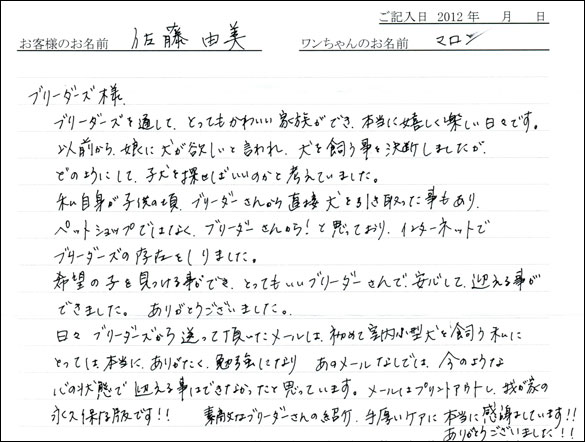 ご記入日 2012 年 月 日
お客様のお名前 佐藤 由美 ワンちゃんのお名前 マロン
ブリーダーズ様
ブリーダーズを通して、とってもかわいい家族ができ、本当に嬉しく楽しい日々です。
以前から、娘に犬が欲しいと言われ、犬を飼う事を決断しましたが、
どのようにして、子犬を探せばいいのかと考えていました。
私自身が子供の頃、ブリーダーさんから直接犬を引き取った事もあり、
ペットショップではなく、ブリーダーさんから！と思っており、インターネットで
ブリーダーズの存在をしりました。
希望の子を見つける事ができ、とってもいいブリーダーさんで、安心して、迎える事が
できました。 ありがとうございました。
日々 ブリーダーズから送って頂いたメールは、初めて室内小型犬を飼う私に
とっては本当に、ありがたく、勉強になり あのメールなしでは、今のような
心の状態で迎える事はできなかったと思っています。メールはプリントアウトし、我が家の
永久保存版です！！ 素敵なブリーダーさんの紹介、手厚いケアに本当に感謝しています！！
ありがとうございました！！